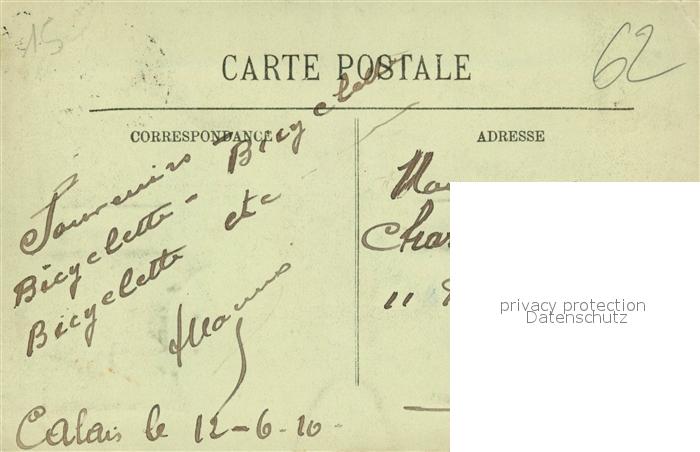 15
62
CARTE POSTALE
CORRESPONDANCE
ADRESSE
Souvenirs - Bicyclette
Bicyclette - etc
Bicyclette
Calais le 12-6-10-
11
privacy protection
Datenschutz